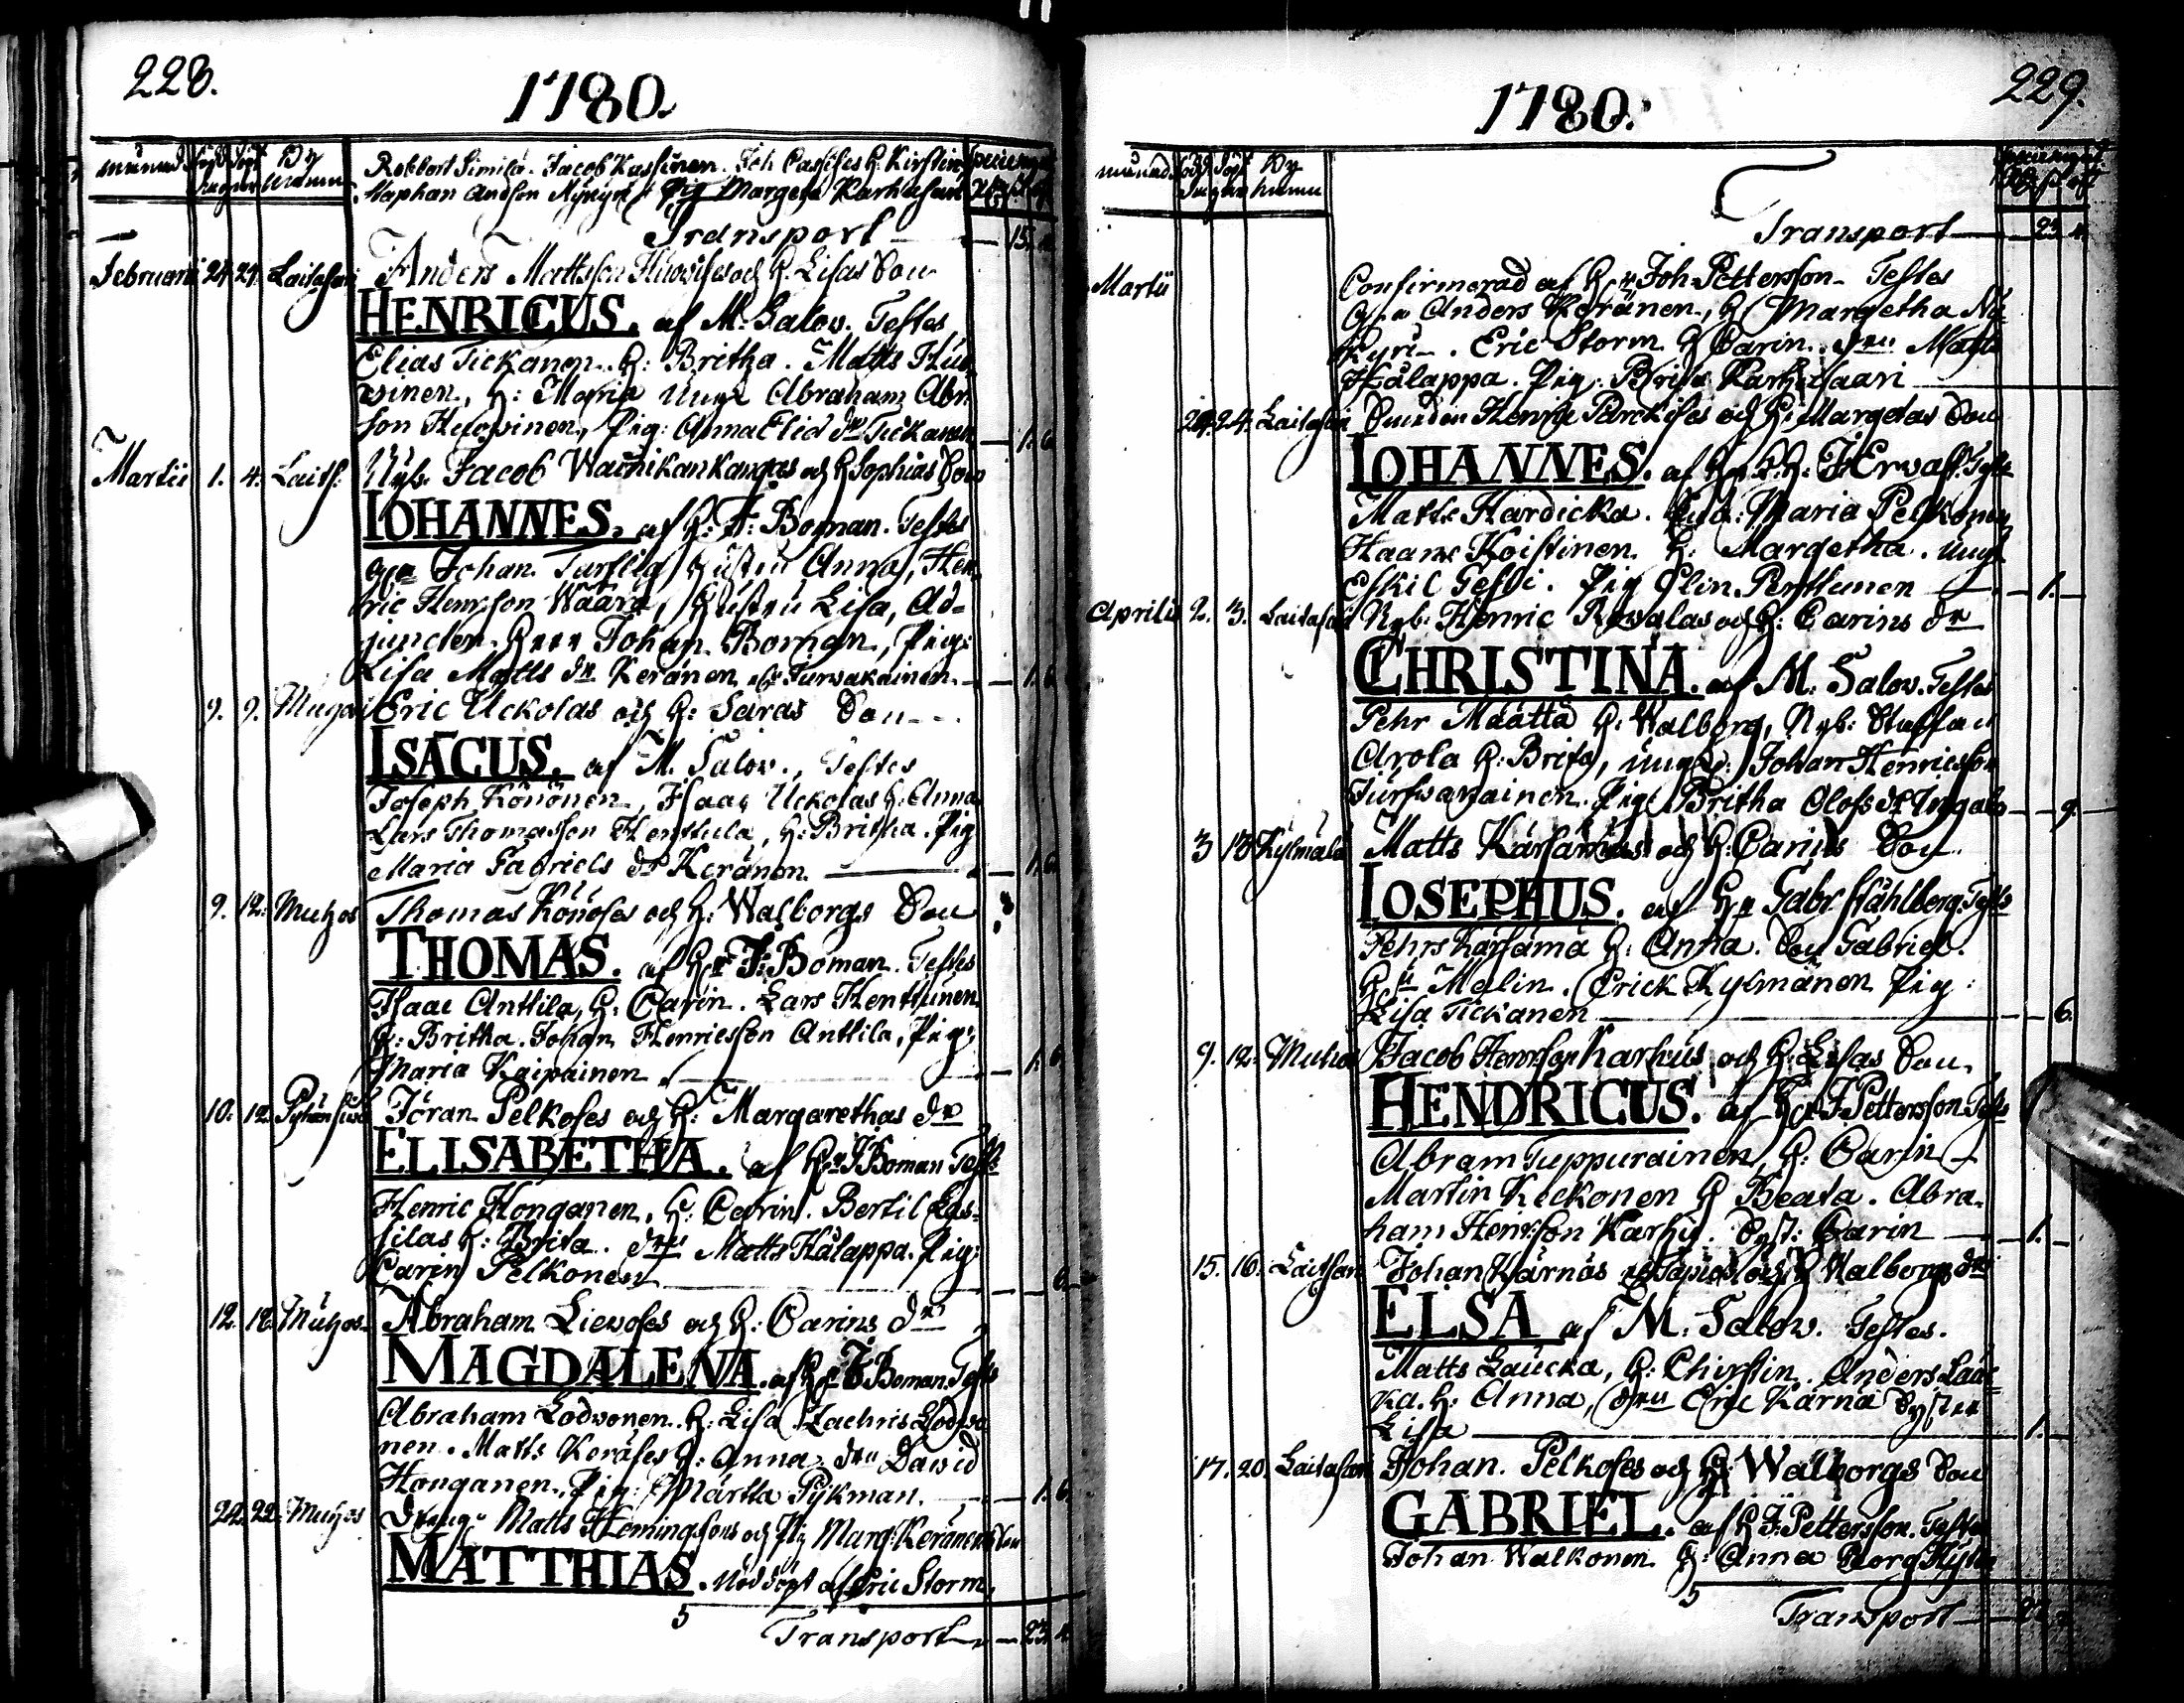 228.
1780.
månad född döpt By
Robbert Similä. Jacob Kassinen. Joh Cassises H. Kirstin
Staphan Andsson Pig Margeta Karhusaari
Transport — 15.
Februarii 24 27. Laitasari Anders Mattsson Huovises och H. Lisas Son
HENRICUS. af M. Salov. Testes
Elias Tickanen. H: Britha. Matts Huo
vinen, H: Maria Ungk Abraham Abr
son Huovinen, Pig: Anna Elia dr Tickanen — 1. 6
Martii 1. 4. Laits: Nyb. Jacob Wachikankangas och H Sophias Son
IOHANNES. af H: F: Boman. Testes
Johan Hustru Anna, Hen
ric Henrsson Waara, Hustru Lisa, Ad=
juncten Herr Johan Boman, Pig:
Lisa Matts dr Keränen — 1. 6
9. 9. Eric Uckolas och H: Saras Son
ISACUS. af M. Salov., Testes
Joseph Könönen, Isaac Uckolas H: Anna
Lars Thomasson Henttula, H: Britha. Pig
Maria Gabriels dr Keränen — 1. 6.
9. 12. Muhos Thomas Könöses och H: Walborgs Son
THOMAS. af Hr F: Boman. Testes
Isaac Anttila, H: Carin. Lars Henttunen
H: Britha. Johan Henricsson Anttila, Pig:
Maria Kaipainen — 1. 6
10. 12. Jöran Pelkoses och H: Margarethas dr
ELISABETHA. af Hr F Boman Tests
Henric Honganen, H: Carin. Bertil Las=
silas H: Brita. Matts Hålappa. Pig:
Carin Pelkonen — 6
12. 18. Muhos Abraham Liewoses och H: Carins dr
MAGDALENA. af Hr F Boman. Tests
Abraham Lodwonen. H: Lisa Zachris Lodwo
nen. Matts Keräses H: Anna David
Honganen. Pig: Märtta Pykman. — 1. 6
22. 22. Muhos Dreng: Matts Hemingsons och Pig Marg: Keränens Son
MATTHIAS. Nöd döpt af Eric Storm,
Transport — 23.
229.
1780.
månad född döpt By
Transport — 23.
Martii Confirmerad af Hr Joh Pettersson. Testes
Anders Keränen, H Margetha Ny=
kyri. Eric Storm H Carin. Matts
Hålappa. Pig: Brita Karhusaari
24. 24. Laitasari Henric Penckises och H: Margetas Son
IOHANNES. af F Erwast. Tests
Matts Hardicka. Maria Pelkonen
Koistinen H: Margetha. Ungk
Eskil Pig Elin Perttunen — 1.
Aprilis 2. 3. Laitasari Nyb: Henric Rewalas och H: Carins dr
CHRISTINA. af M. Salov. Testes
Pehr Määttä H: Walborg, Nyb: Staffan
Arola H: Brita, Johan Henricsson
Pig Britha Olofs dr — 9.
3 13 Kylmälä Matts Kärsämäs och H: Carins Son
IOSEPHUS. af Hr Gabr Ståhlberg. Tests
Pehrs Kärsämä H: Anna. Son Gabriel.
Malin. Erick Kylmänen Pig:
Lisa Tickanen — 6.
9. 12. Muhos Jacob Henrsson Karhus och H: Lisas Son.
HENDRICUS. af Hr F. Pettersson. Tests
Abram Tuppurainen, H: Carin
Martin Kickonen H Beata. Abra=
ham Henrsson Karhu. Syst: Carin — 1.
15. 16. Laitsari Johan Kärnäs och H Walborgs dr
ELSA af M. Salov. Testes.
Matts Laucka, H: Chirstin. Anders Lauc=
ka. H: Anna, Eric Kärnä Syster
Lisa — 1.
17. 20. Laitasari Johan. Pelkoses och H: Walborgs Son
GABRIEL. af H F: Pettersson. Testes
Johan Walkonen H: Anna
Transport